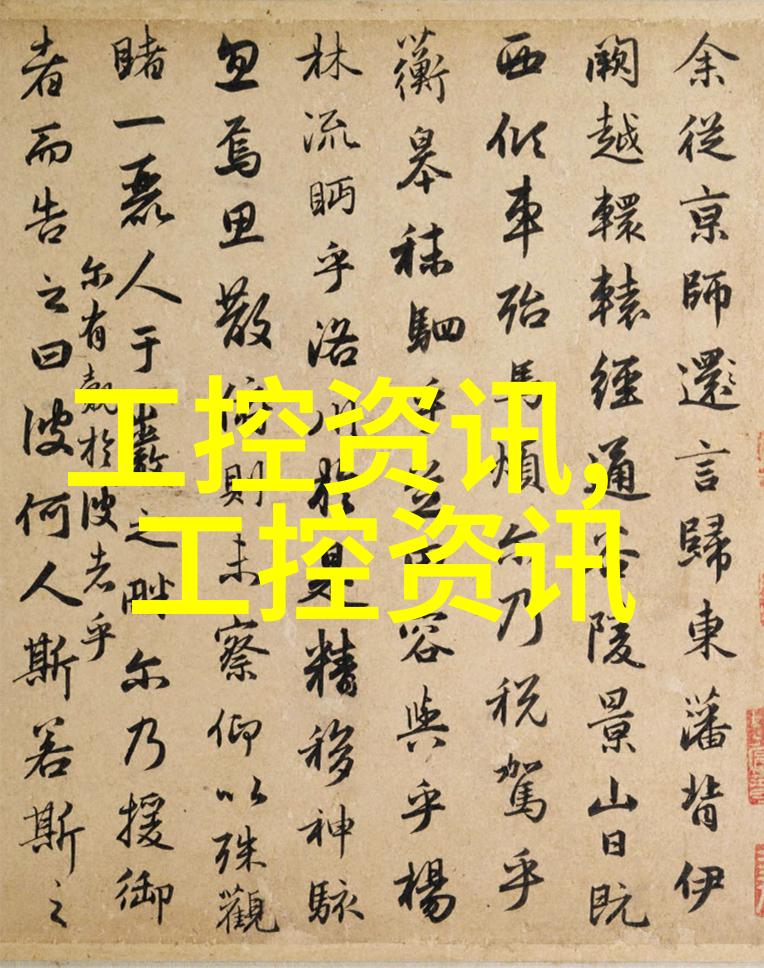 余從京師還言歸東藩背伊
闕越轘轅經通谷陵景山日既
西傾車殆馬煩尔乃税駕乎
蘅皋秣駟乎芝田容與乎楊
林流眄乎洛川於是精移神駭
忽焉思散俯則未察仰以殊觀
睹一麗人于巖之畔尔乃援御
尔有覿於彼者乎
者而告之曰彼何人斯若斯之
工控资讯,
工控资讯